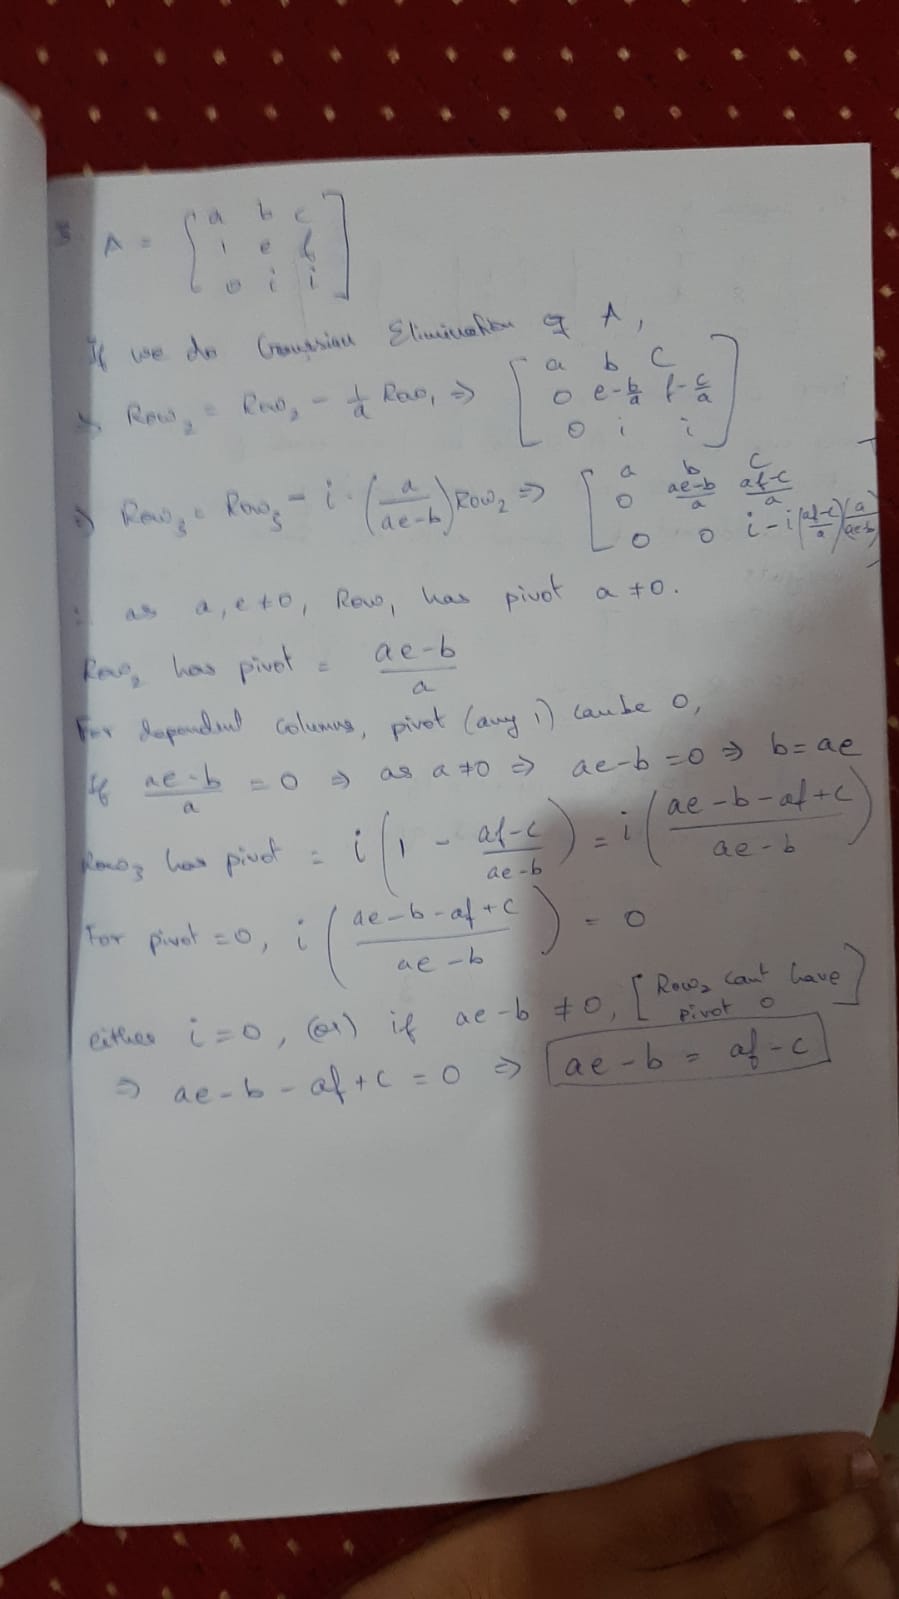 A = [ a b c
1 e f
0 i i ]
If we do Gaussian Elimination of A,
⇒ Row₂ = Row₂ - 1/a Row₁ ⇒ [ a b c
0 e-b/a f-c/a
0 i i ]
⇒ Row₃ = Row₃ - i·(a/(ae-b)) Row₂ ⇒ [ a b c
0 (ae-b)/a (af-c)/a
0 0 i-i((af-c)/a)(a/(ae-b)) ]
∴ as a, e ≠ 0, Row₁ has pivot a ≠ 0.
Row₂ has pivot = (ae-b)/a
For dependent columns, pivot (any 1) can be 0,
If (ae-b)/a = 0 ⇒ as a ≠ 0 ⇒ ae-b = 0 ⇒ b = ae
Row₃ has pivot = i(1 - (af-c)/(ae-b)) = i((ae-b-af+c)/(ae-b))
For pivot = 0, i((ae-b-af+c)/(ae-b)) = 0
either i = 0, (or) if ae-b ≠ 0, [Row₂ cant have pivot 0]
⇒ ae-b-af+c = 0 ⇒ ae-b = af-c